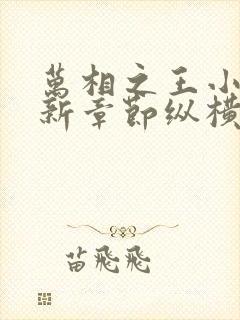 萬相之王小
新章節纵橫
苗飛飛